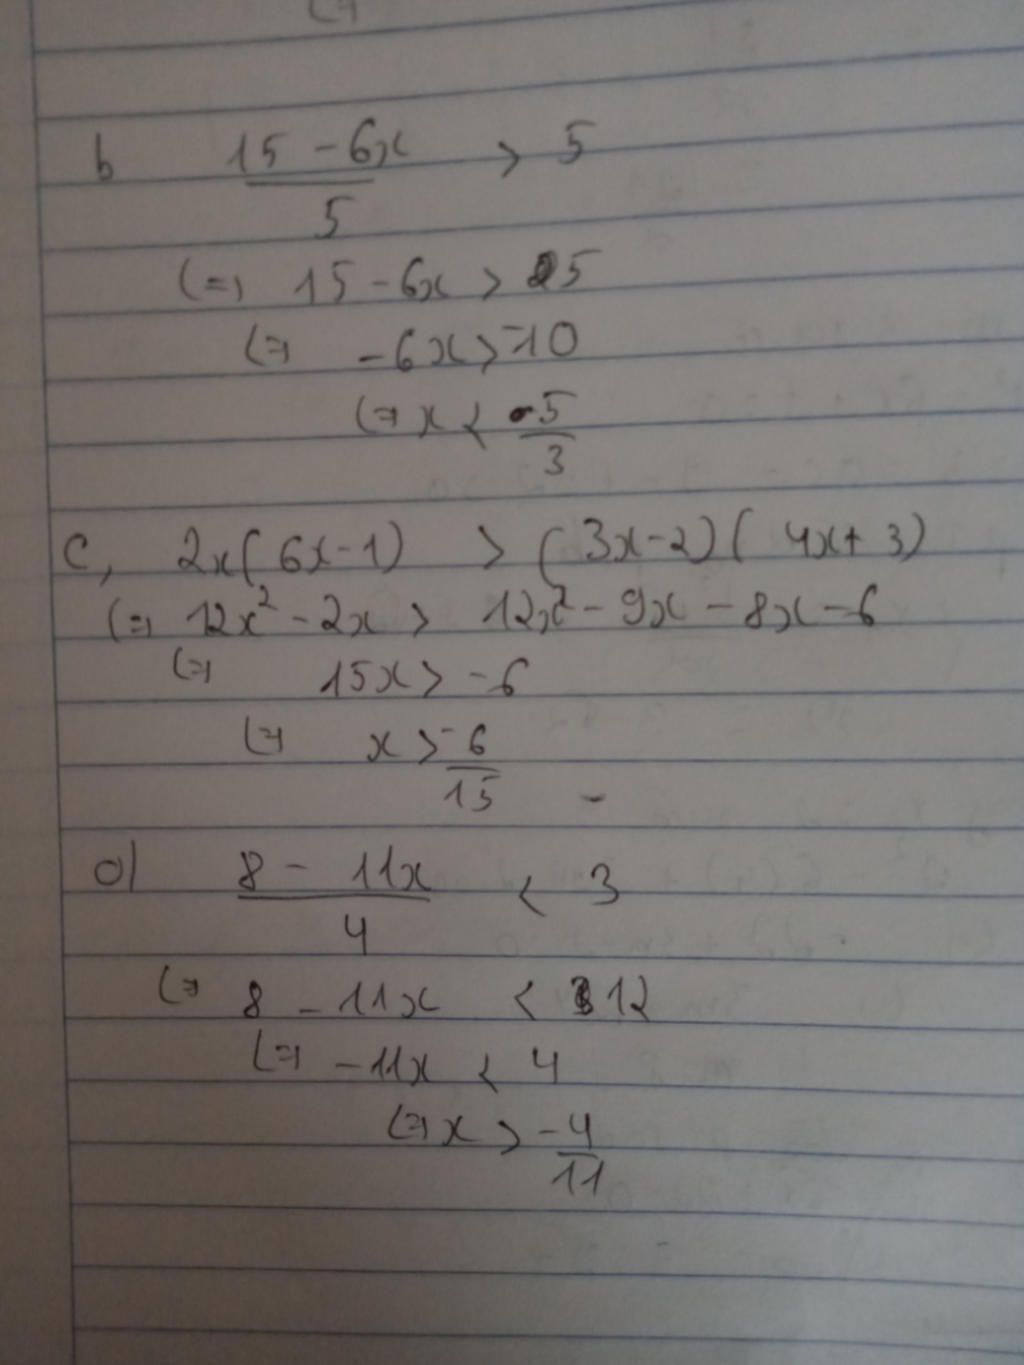 b 15 - 6x / 5 > 5
(=) 15 - 6x > 25
(=) - 6x > 10
(=) x < -5/3
c, 2x(6x-1) > (3x-2)(4x+3)
(=) 12x² - 2x > 12x² - 9x - 8x - 6
(=) 15x > -6
(=) x > -6/15
d) 8 - 11x / 4 < 3
(=) 8 - 11x < 12
(=) - 11x < 4
(=) x > -4/11